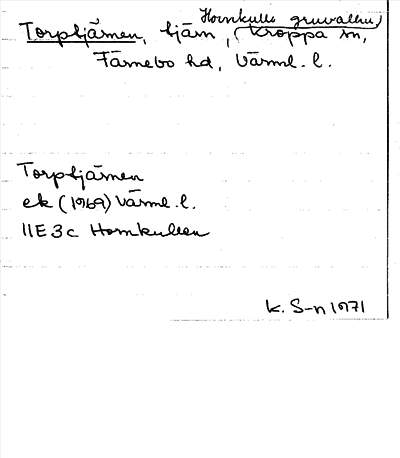 Hornkulls gruvallm)
Torptjärnen, tjärn, (Kroppa sn,
Färnebo hd, Värml. l.
Torptjärnen
ek (1969) Värml. l.
11E3c Hornkullen
K. S-n 1971